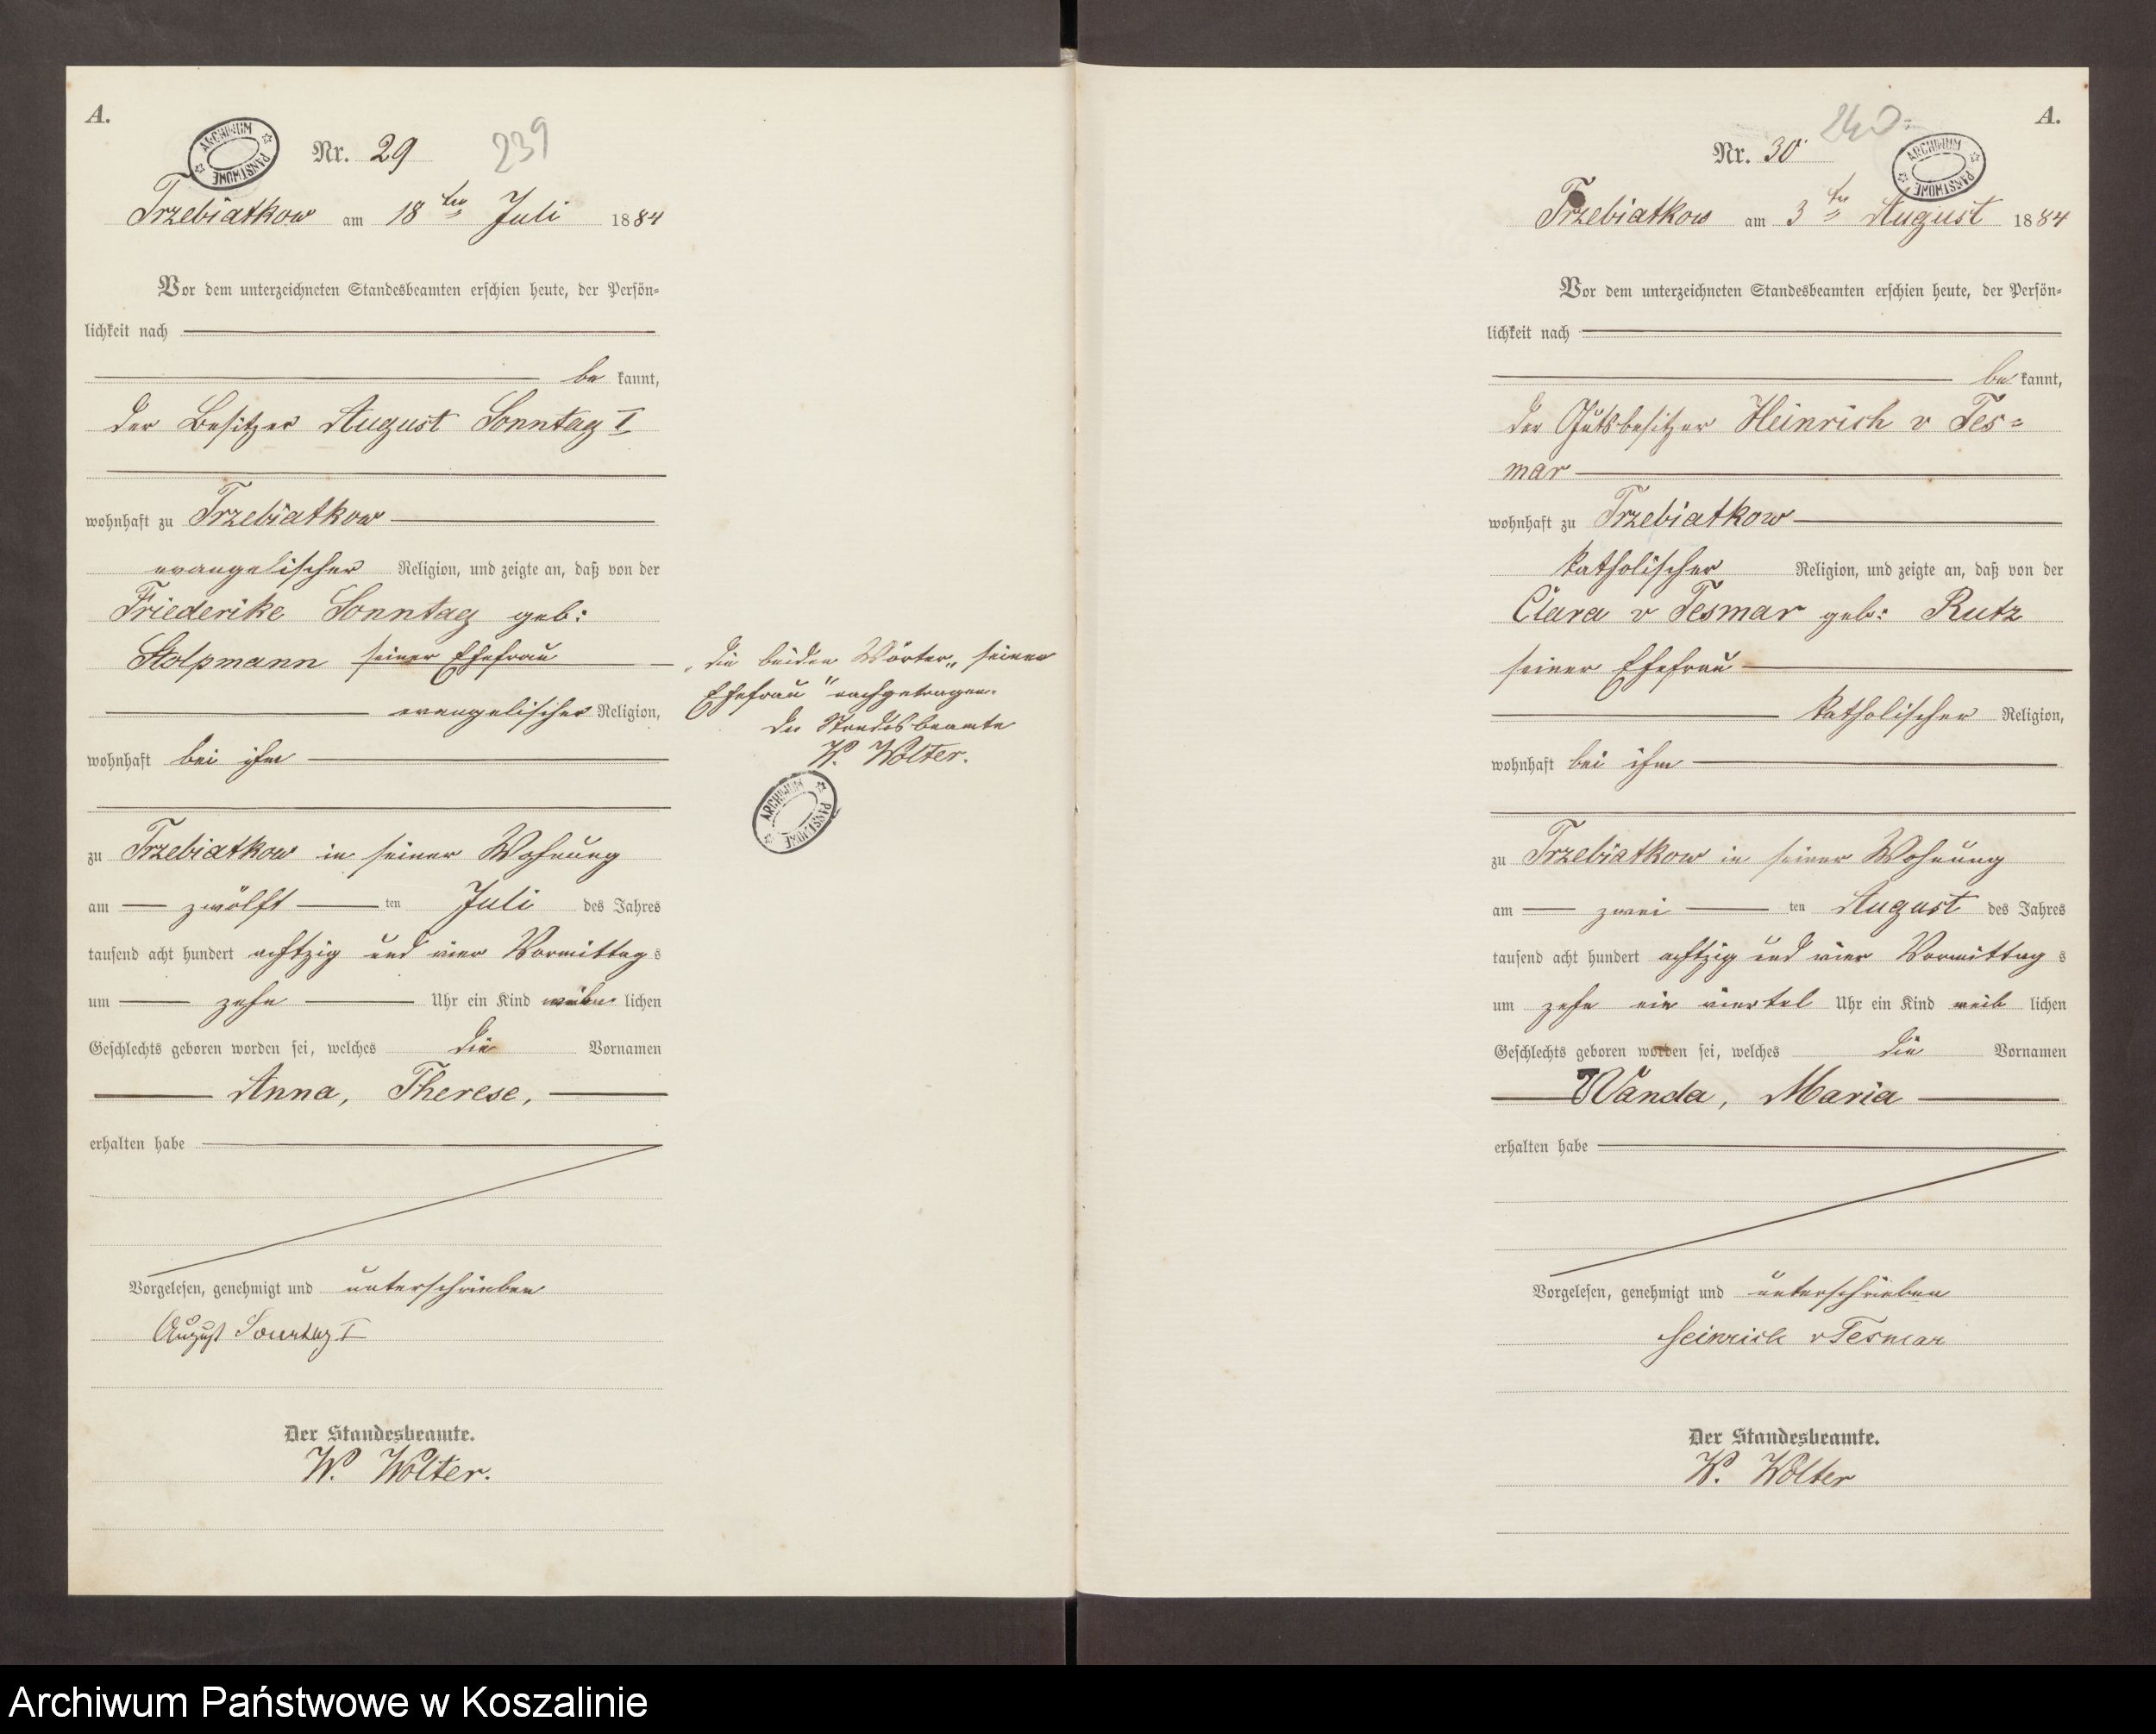 A.
ARCHIWUM PAŃSTWOWE
Nr. 29
239
Trzebiatkow am 18ten Juli 1884
Vor dem unterzeichneten Standesbeamten erschien heute, der Persön-
lichkeit nach
be kannt,
der Besitzer August Sonntag I
wohnhaft zu Trzebiatkow
evangelischer Religion, und zeigte an, daß von der
Friederike Sonntag geb:
Stolpmann seiner Ehefrau
evangelischer Religion,
wohnhaft bei ihm
zu Trzebiatkow in seiner Wohnung
am zwölft ten Juli des Jahres
tausend acht hundert achtzig und vier Vormittag s
um zehn Uhr ein Kind weib lichen
Geschlechts geboren worden sei, welches die Vornamen
Anna, Therese,
erhalten habe
Vorgelesen, genehmigt und unterschrieben
August Sonntag I
Der Standesbeamte.
W. Wolter.
„die beiden Wörter „seiner
Ehefrau" nachgetragen.
Der Standesbeamte
W. Wolter.
ARCHIWUM PAŃSTWOWE
A.
Nr. 30
240
ARCHIWUM PAŃSTWOWE
Trzebiatkow am 3ten August 1884
Vor dem unterzeichneten Standesbeamten erschien heute, der Persön-
lichkeit nach
be kannt,
der Gutsbesitzer Heinrich v Tes-
mar
wohnhaft zu Trzebiatkow
katholischer Religion, und zeigte an, daß von der
Clara v Tesmar geb: Rutz
seiner Ehefrau
katholischer Religion,
wohnhaft bei ihm
zu Trzebiatkow in seiner Wohnung
am zwei ten August des Jahres
tausend acht hundert achtzig und vier Vormittag s
um zehn ein viertel Uhr ein Kind weib lichen
Geschlechts geboren worden sei, welches die Vornamen
Wanda, Maria
erhalten habe
Vorgelesen, genehmigt und unterschrieben
Heinrich v Tesmar
Der Standesbeamte.
W. Wolter
Archiwum Państwowe w Koszalinie